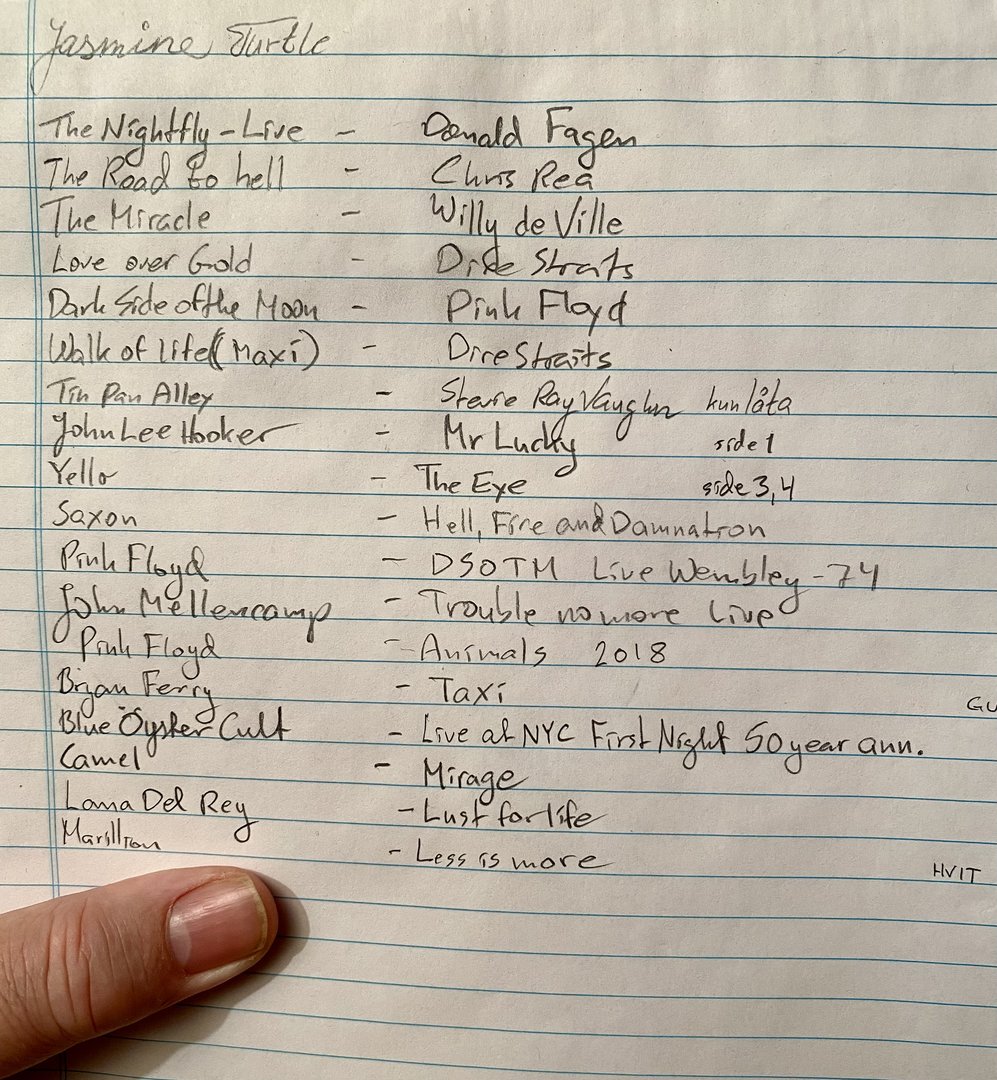 Jasmine Turtle
The Nightfly - Live - Donald Fagen
The Road to hell - Chris Rea
The Miracle - Willy de Ville
Love over Gold - Dire Straits
Dark Side of the Moon - Pink Floyd
Walk of life (Maxi) - Dire Straits
Tin Pan Alley - Stevie Ray Vaughn kun låta
John Lee Hooker - Mr Lucky side 1
Yello - The Eye side 3,4
Saxon - Hell, Fire and Damnation
Pink Floyd - DSOTM Live Wembley - 74
John Mellencamp - Trouble no more Live
Pink Floyd - Animals 2018
Bryan Ferry - Taxi
GU
Blue Öyster Cult - Live at NYC First Night 50 year ann.
Camel - Mirage
Lana Del Rey - Lust for life
Marillion - Less is more
HVIT